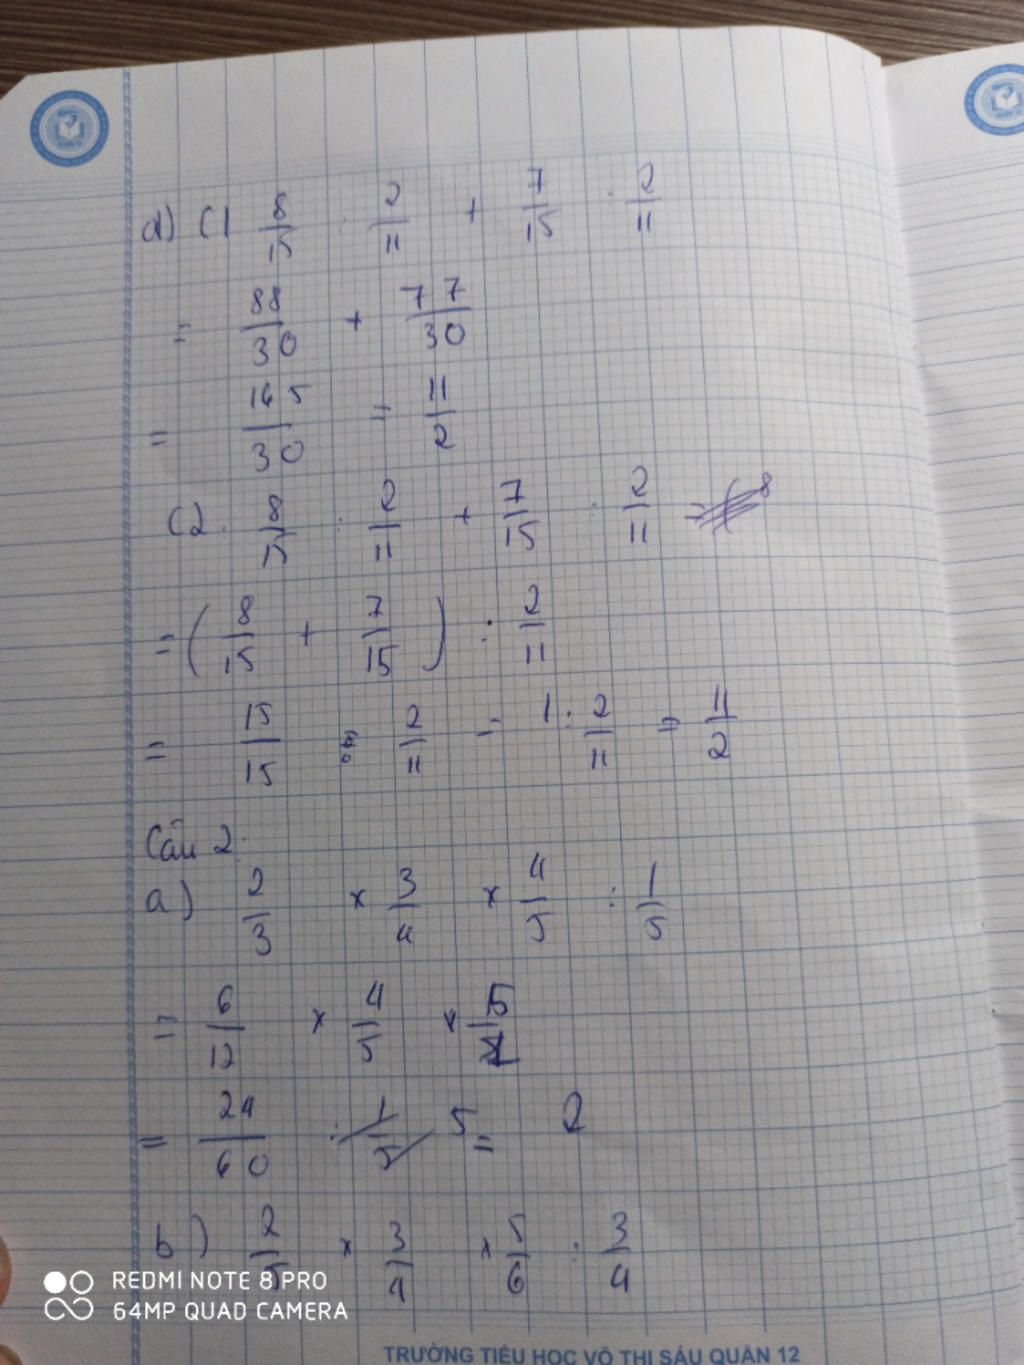 d) C1 8/15 : 2/11 + 7/15 : 2/11
= 88/30 + 77/30
= 165/30 = 11/2
C2. 8/15 : 2/11 + 7/15 : 2/11 =
= (8/15 + 7/15) : 2/11
= 15/15 : 2/11 = 1 : 2/11 = 11/2
Câu 2.
a) 2/3 × 3/4 × 4/5 : 1/5
= 6/12 × 4/5 × 5/1
= 24/60 : 1/5 5 = 2
b) 2/5 × 3/4 × 5/6 : 3/4
REDMI NOTE 8 PRO
64MP QUAD CAMERA
TRƯỜNG TIỂU HỌC VÕ THỊ SÁU QUẬN 12